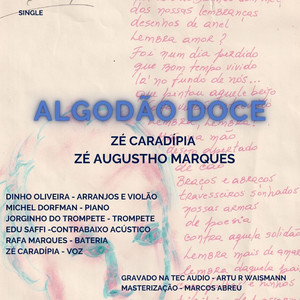 SINGLE
das nossas lembranças
desenhos de anel
Lembra amor?
Foi num dia perdido
que bom tempo vivido
lá no fundo de nós...
que
ALGODÃO DOCE
ZÉ CARADÍPIA
mão
despertado
ZÉ AUGUSTHO MARQUES
Braços e abraços
travesseiros sonhados
nossas armas
de poesia
contra aquela solidão
DINHO OLIVEIRA - ARRANJOS E VIOLÃO
MICHEL DORFMAN - PIANO
JORGINHO DO TROMPETE - TROMPETE
EDU SAFFI -CONTRABAIXO ACÚSTICO
RAFA MARQUES - BATERIA
ZÉ CARADÍPIA - VOZ
Lembra mais
GRAVADO NA TEC AUDIO - ARTU R WAISMANN
MASTERIZAÇÃO - MARCOS ABREU